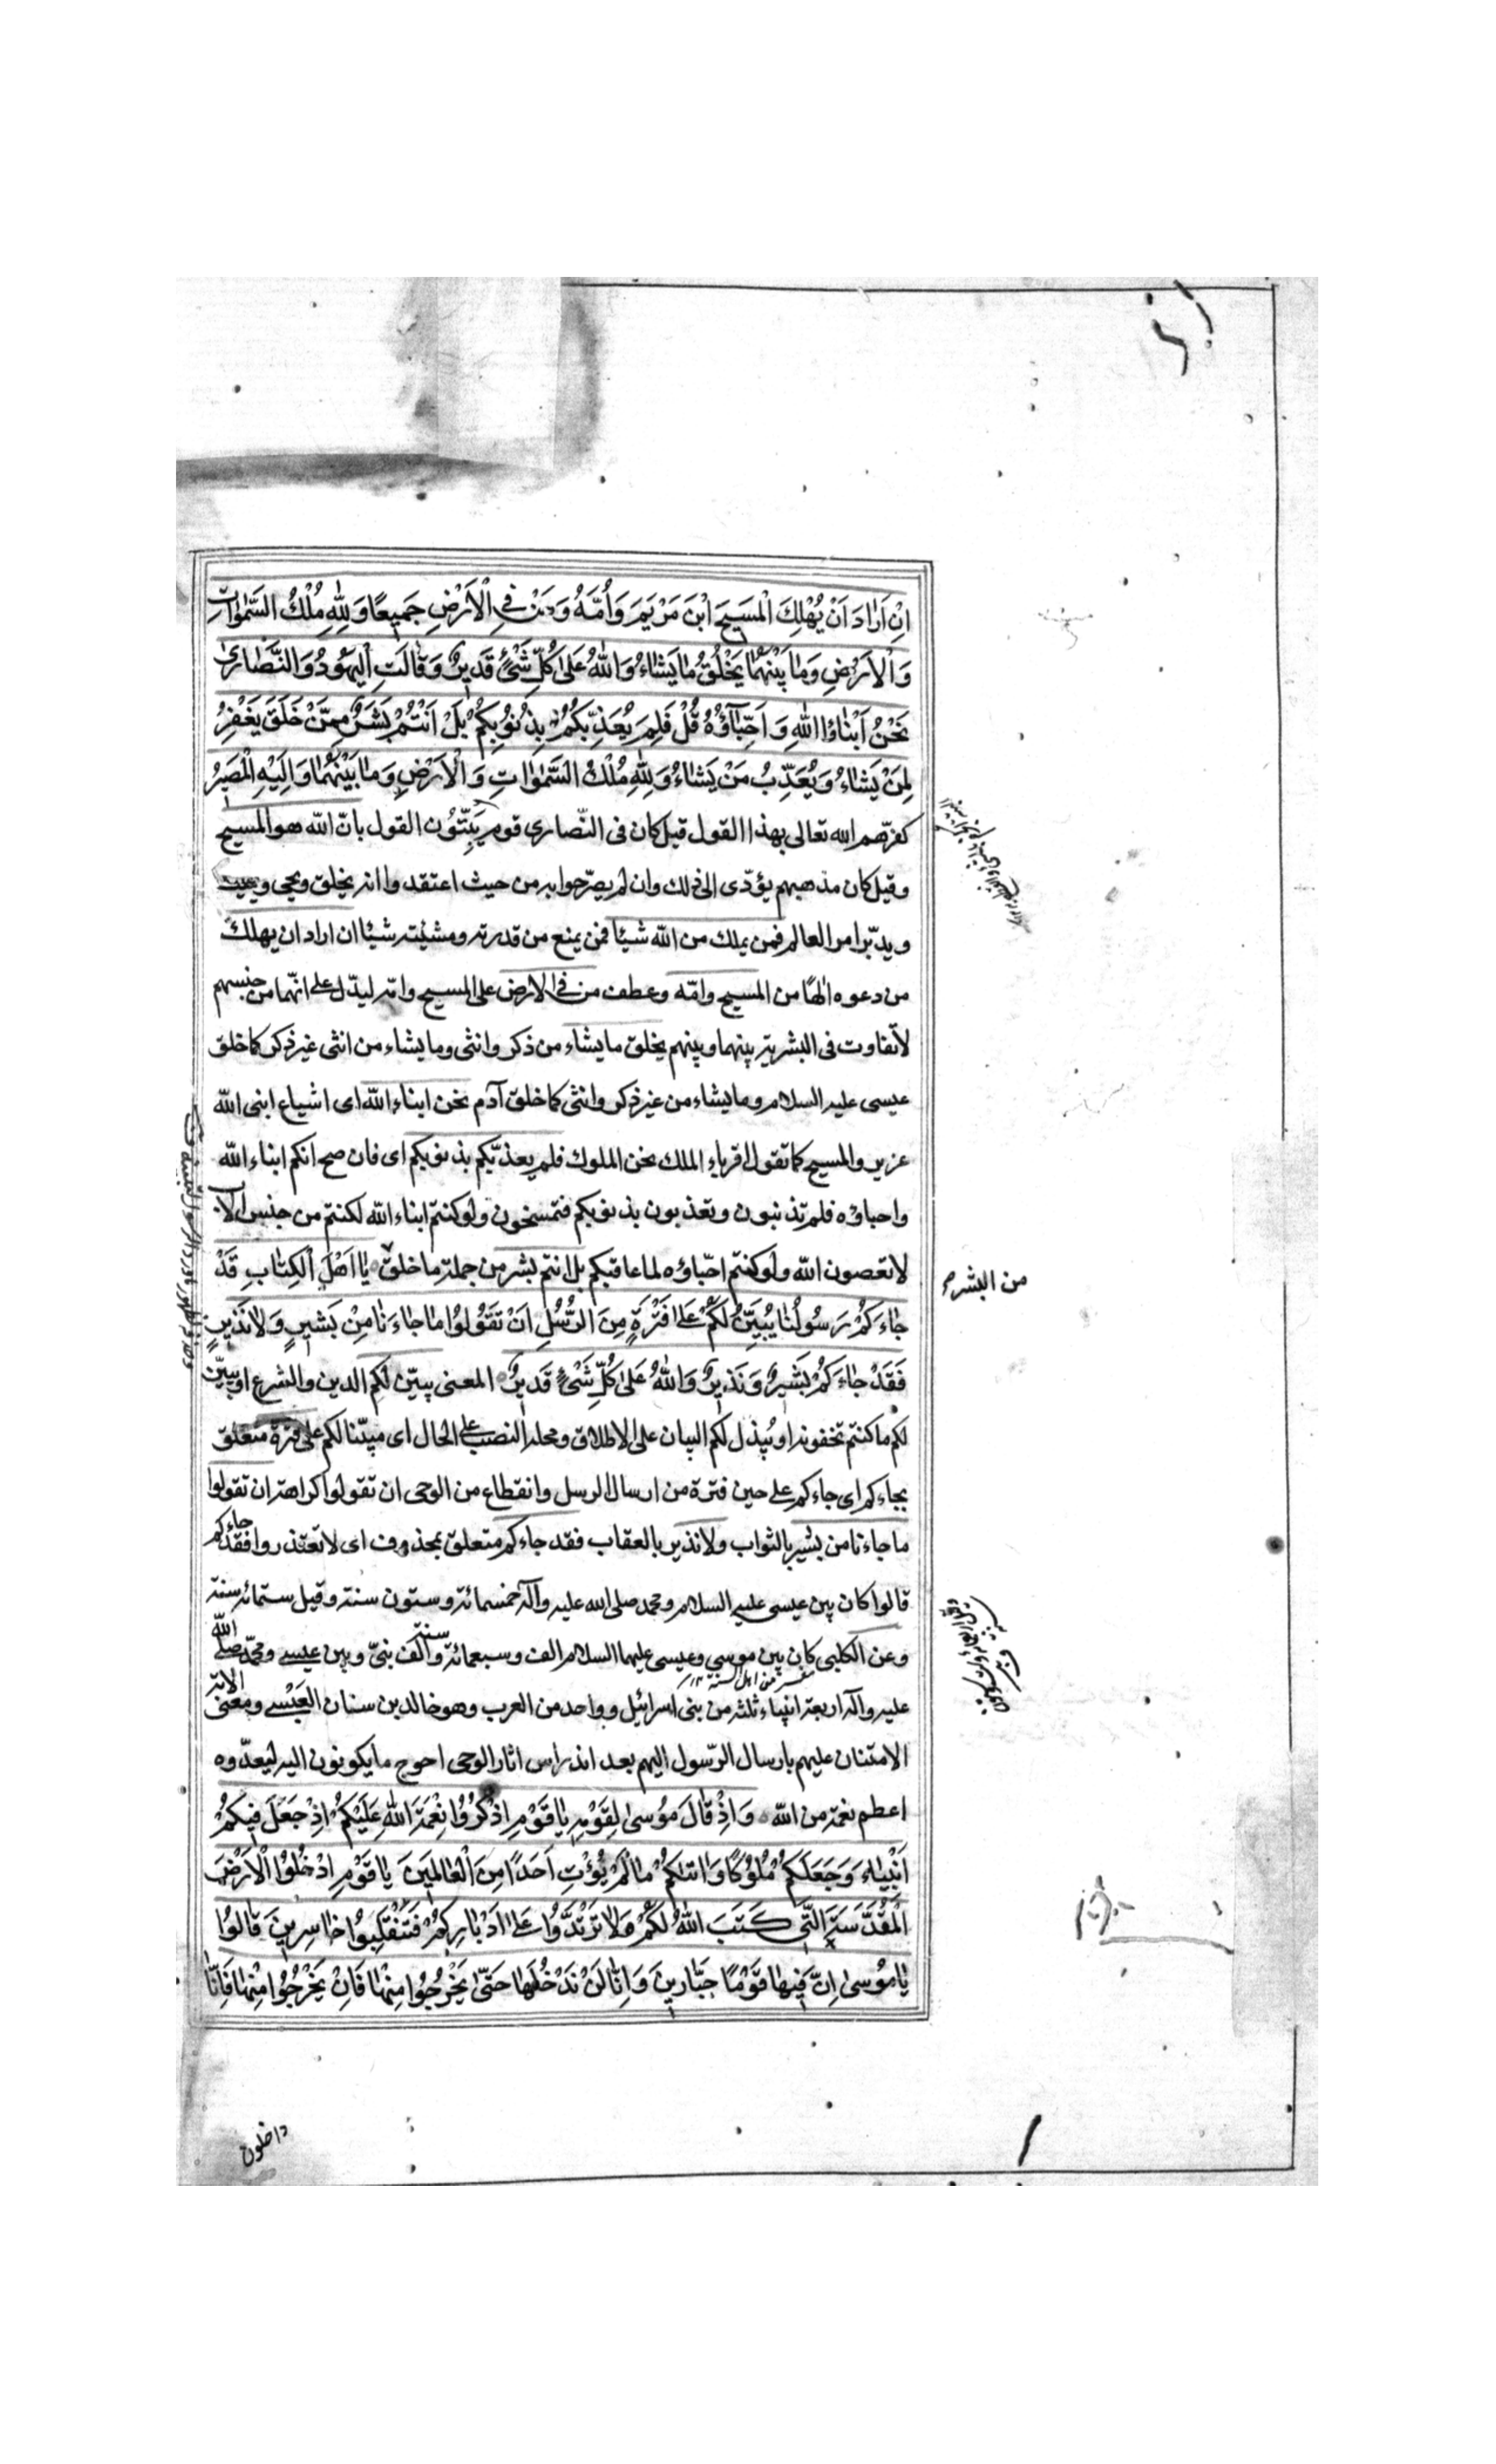 اِنْ اَرٰادَ اَنْ يُهْلِكَ الْمَسيحَ ابْنَ مَرْيَمَ وَاُمَّهُ وَمَنْ فِي الْاَرْضِ جَميعًا وَلِلّٰهِ مُلْكُ السَّمٰوٰاتِ
وَالْاَرْضِ وَمٰا بَيْنَهُمٰا يَخْلُقُ مٰا يَشٰاءُ وَاللّٰهُ عَلىٰ كُلِّ شَيْءٍ قَديرٌ وَقٰالَتِ الْيَهُودُ وَالنَّصٰارىٰ
نَحْنُ اَبْنٰاؤُا اللّٰهِ وَ اَحِبّٰآؤُهُ قُلْ فَلِمَ يُعَذِّبُكُمْ بِذُنُوبِكُمْ بَلْ اَنْتُمْ بَشَرٌ مِمَّنْ خَلَقَ يَغْفِرُ
لِمَنْ يَشٰاءُ وَيُعَذِّبُ مَنْ يَشٰاءُ وَلِلّٰهِ مُلْكُ السَّمٰوٰاتِ وَالْاَرْضِ وَمٰا بَيْنَهُمٰا وَاِلَيْهِ الْمَصيرُ
كفرّهم الله تعالى بهذا القول قيل كان فى النّصارى قوم يَبِتّوُن القول بانّ اللّه هو المسيح
وقيل كان مذهبهم يؤدّى الى ذلك وان لم يصرّحوا به من حيث اعتقدوا انه يخلق ويحيى ويميت
ويدبّر امر العالم فمن يملك من اللّه شيئا فمن يمنع من قدرته ومشيّته شيئا ان اراد ان يهلك
من دعوه الهًا من المسيح وامّه وعطف من فى الارض على المسيح وامّه ليدّل على انّهما من جنسهم
لا تفاوت فى البشرية بينهما وبينهم يخلق ما يشاء من ذكر وانثى وما يشاء من انثى غير ذكر كما خلق
عيسى عليه السلام وما يشاء من غير ذكر وانثى كما خلق آدم نحن ابناء اللّه اى اشياع ابنى اللّه
عزير والمسيح كما تقول اقرباء الملك نحن الملوك فلم يعذّبكم بذنوبكم اى فان صح انكم ابناء اللّه
واحباؤه فلم تذنبون وتعذبون بذنوبكم فتمسخون ولو كنتم ابناء اللّه لكنتم من جنس الاب
لا تعصون اللّه ولو كنتم احبّاؤه لما عاقبكم بل انتم بشر من جملة ما خلق يٰا اَهْلَ الْكِتٰابِ قَدْ
من البشر
جٰاءَكُمْ رَسُولُنٰا يُبَيِّنُ لَكُمْ عَلىٰ فَتْرَةٍ مِنَ الرُّسُلِ اَنْ تَقُولُوا مٰا جٰاءَنٰا مِنْ بَشيرٍ وَلٰا نَذيرٍ
فَقَدْ جٰاءَكُمْ بَشيرٌ وَنَذيرٌ وَاللّٰهُ عَلىٰ كُلِّ شَيْءٍ قَديرٌ المعنى يبيّن لكم الدين والشرع او يبيّن
لكم ما كنتم تخفونه او يبذل لكم البيان على الاطلاق ومحله النصب على الحال اى مبيّنا لكم على فترة متعلق
بجاءكم اى جاءكم على حين فترة من ارسال الرسل وانقطاع من الوحى ان تقولوا كراهة ان تقولوا
ما جاءنا من بشير بالثواب ولا نذير بالعقاب فقد جاءكم متعلق بمحذوف اى لا تعتذروا فقد جاءكم
قالوا كان بين عيسى عليه السلام ومحمد صلى الله عليه وآله خمسمائة وستون سنة وقيل ستمائة سنة
وعن الكلبى كان بين موسى وعيسى عليهما السلام الف وسبعمائة سنة والف نبىّ وبين عيسى ومحمّد صلى اللّه
عليه وآله اربعة انبياء ثلثة من بنى اسرائيل وواحد من العرب وهو خالد بن سنان العَبْسى ومعنى الاية
الامتنان عليهم بارسال الرّسول اليهم بعد اندراس اثار الوحى احوج ما يكونون اليه ليعدّوه
اعظم نعمة من اللّه وَاِذْ قٰالَ مُوسىٰ لِقَوْمِهِ يٰا قَوْمِ اذْكُرُوا نِعْمَةَ اللّٰهِ عَلَيْكُمْ اِذْ جَعَلَ فيكُمْ
اَنْبِيٰاءَ وَجَعَلَكُمْ مُلُوكًا وَاٰتٰيكُمْ مٰا لَمْ يُؤْتِ اَحَدًا مِنَ الْعٰالَمينَ يٰا قَوْمِ ادْخُلُوا الْاَرْضَ
الْمُقَدَّسَةَ الَّتي كَتَبَ اللّٰهُ لَكُمْ وَلٰا تَرْتَدُّوا عَلىٰ اَدْبٰارِكُمْ فَتَنْقَلِبُوا خٰاسِرينَ قٰالُوا
يٰا مُوسىٰ اِنَّ فيهٰا قَوْمًا جَبّٰارينَ وَاِنّٰا لَنْ نَدْخُلَهٰا حَتّىٰ يَخْرُجُوا مِنْهٰا فَاِنْ يَخْرُجُوا مِنْهٰا فَاِنّٰا
داخلون